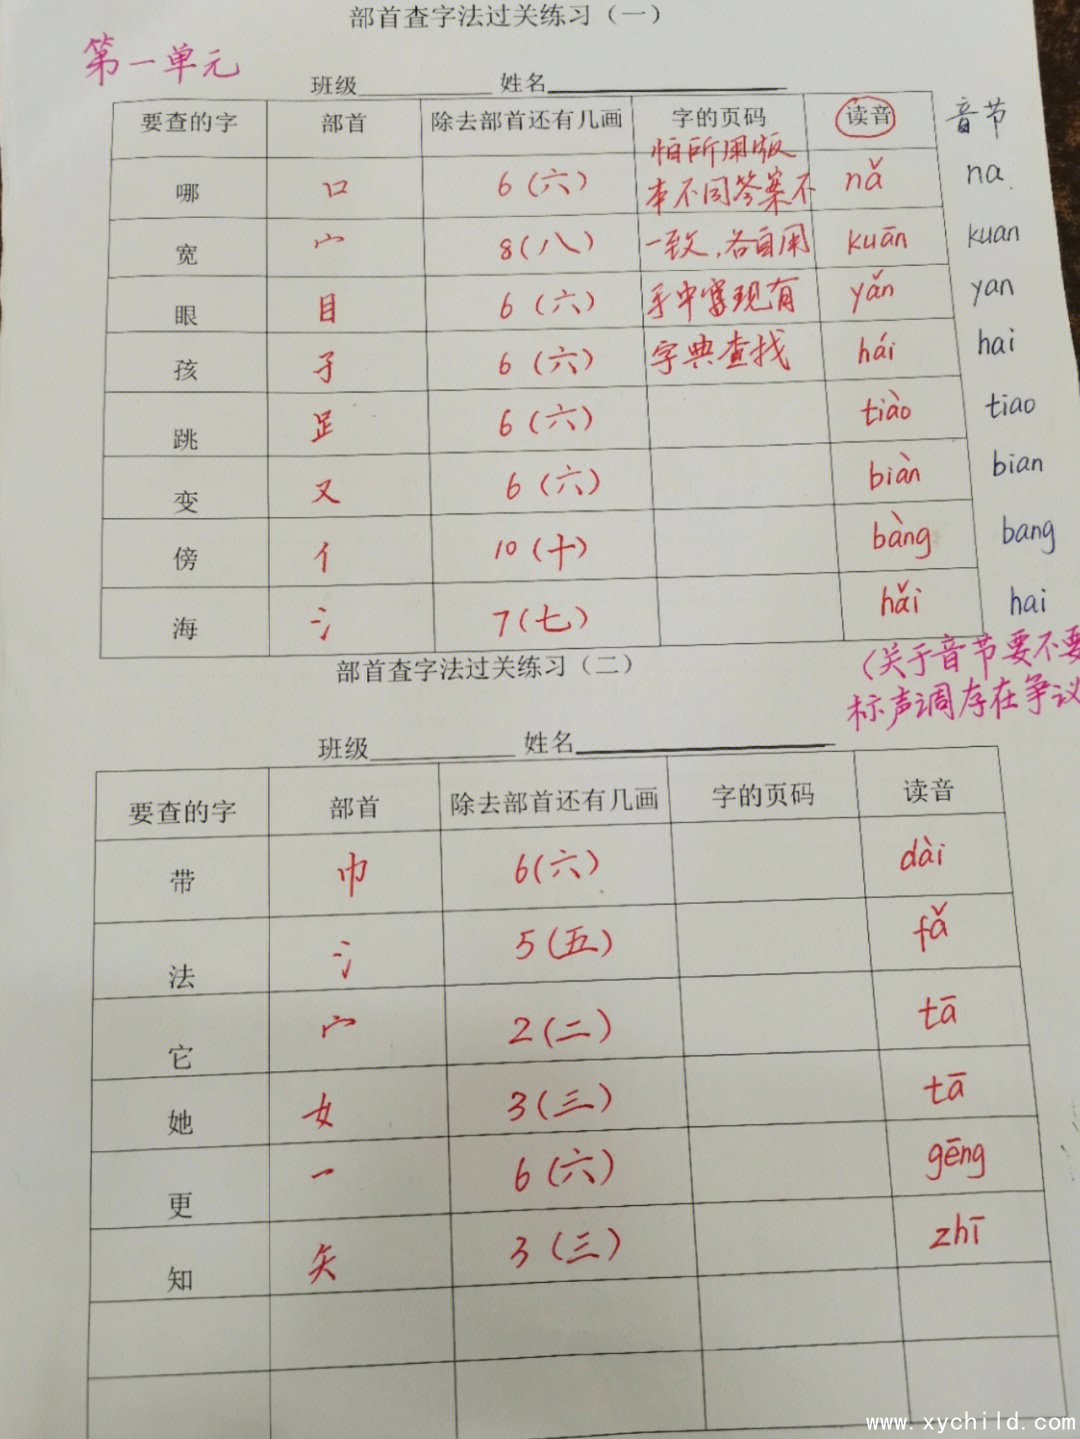 部首查字法过关练习（一）
第一单元
班级 姓名
要查的字 部首 除去部首还有几画 字的页码 读音 音节
怕所用版
哪 口 6（六） 本不同答案不 nǎ na
宽 宀 8（八） 一致，各自用 kuān kuan
眼 目 6（六） 手中现有 yǎn yan
孩 子 6（六） 字典查找 hái hai
跳 足 6（六） tiào tiao
变 又 6（六） biàn bian
傍 亻 10（十） bàng bang
海 氵 7（七） hǎi hai
部首查字法过关练习（二）
（关于音节要不要
标声调存在争议
班级 姓名
要查的字 部首 除去部首还有几画 字的页码 读音
带 巾 6（六） dài
法 氵 5（五） fǎ
它 宀 2（二） tā
她 女 3（三） tā
更 一 6（六） gēng
知 矢 3（三） zhī
www.xychild.com